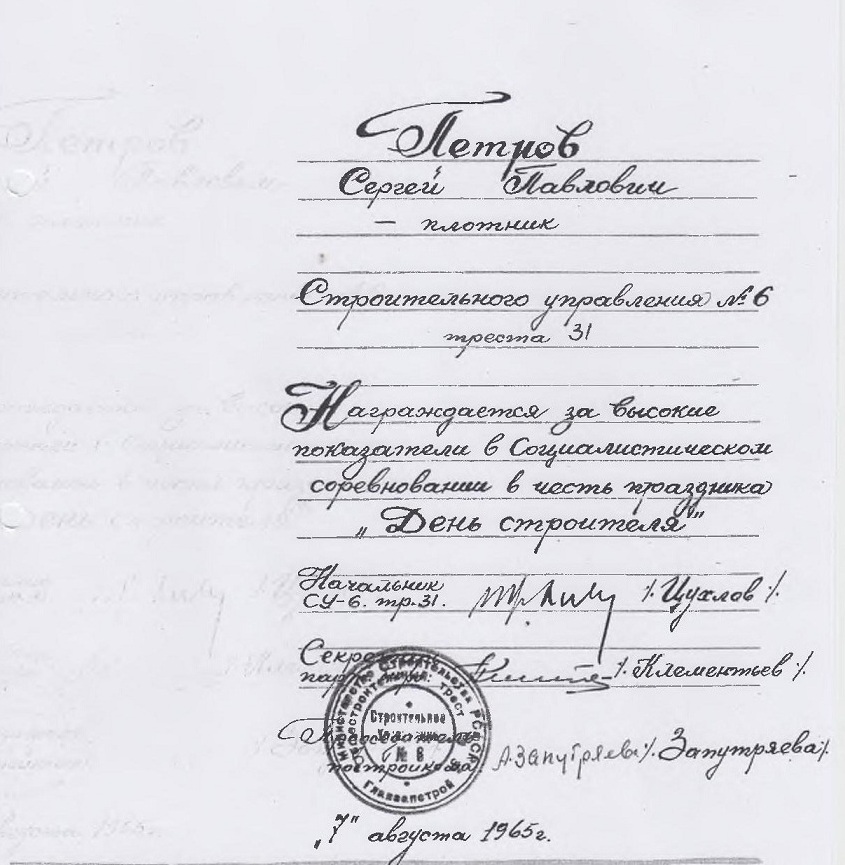 Петров
Сергей Павлович
— плотник
Строительного управления № 6
треста 31
Награждается за высокие
показатели в Социалистическом
соревновании в честь праздника
„День строителя"
Начальник
СУ-6. тр.31. /. Цухлов /.
Секретарь /. Клементьев /.
Министерство Строительства РСФСР
трест
Строительное
Главзапстрой
Председатель
постройкома: А. Запутряева /. Запутряева /.
„7" августа 1965г.